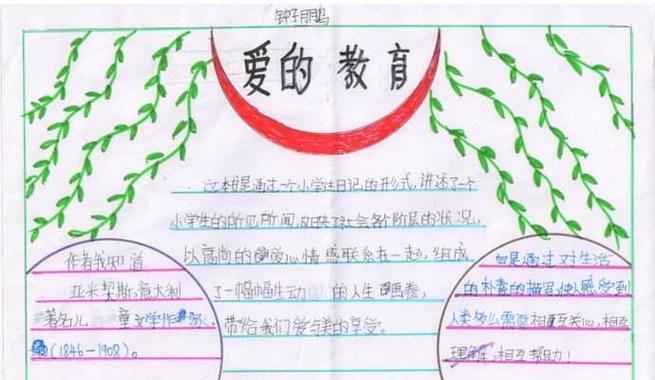 钟子鹏
爱的 教育
这本书是通过一个小学生日记的形式,讲述了一个
小学生的所见所闻,反映了社会各阶层的状况,
以高尚的爱心情感联系在一起,组成
了一幅幅生动 的人生画卷,
带给我们爱与美的享受。
作者我知道
亚米契斯,意大利
著名儿 童文学作家
(1846—1908)。
它是通过对生活
的朴素的描写,使人感受到
人类多么需要相互关心,相互
理解,相互帮助!